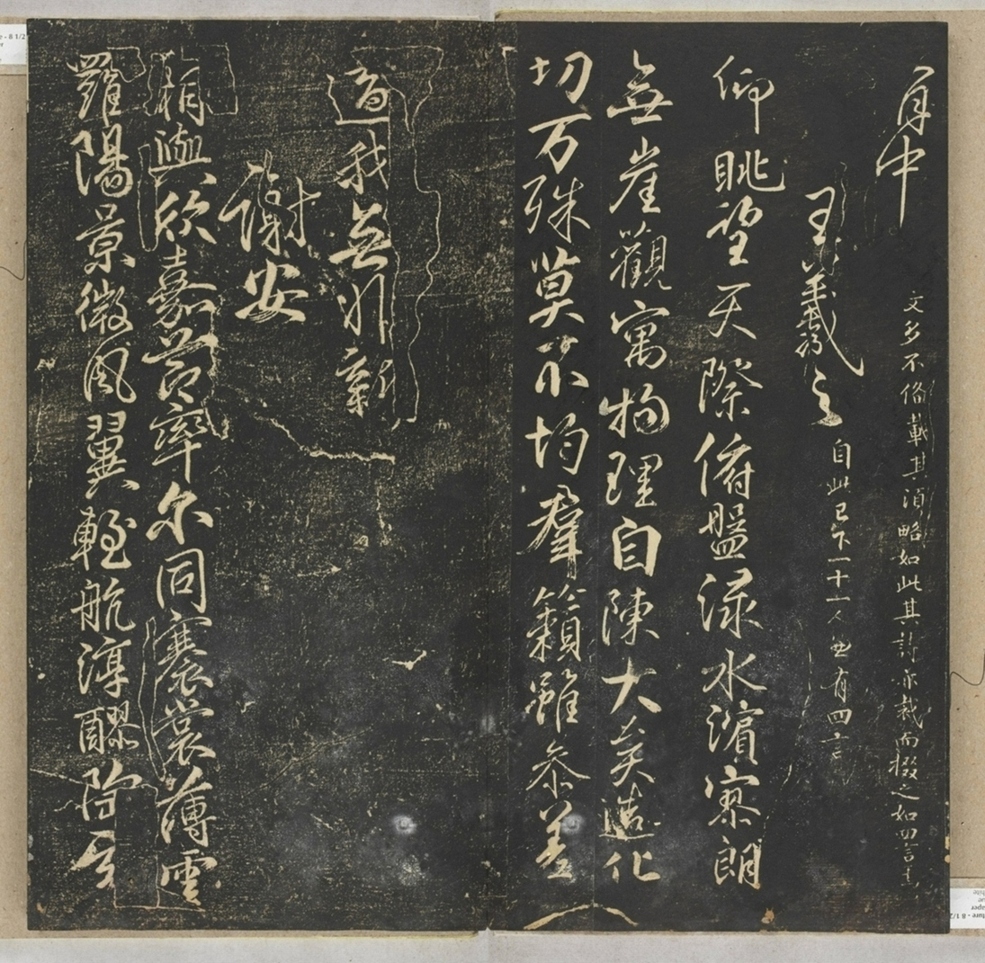 中 文多不俻載其 略如此其詩亦裁而掇之如四言
王羲之 自此已下一十一人並有四言
仰眺望天際俯盤淥水濱寥朗
無崖觀寓物理自陳大矣造化
切万殊莫不均羣籟雖參差
適我無非新
謝安
相與欣嘉節率尔同褰裳薄雲
羅陽景微風翼輕航淳醪陶玄